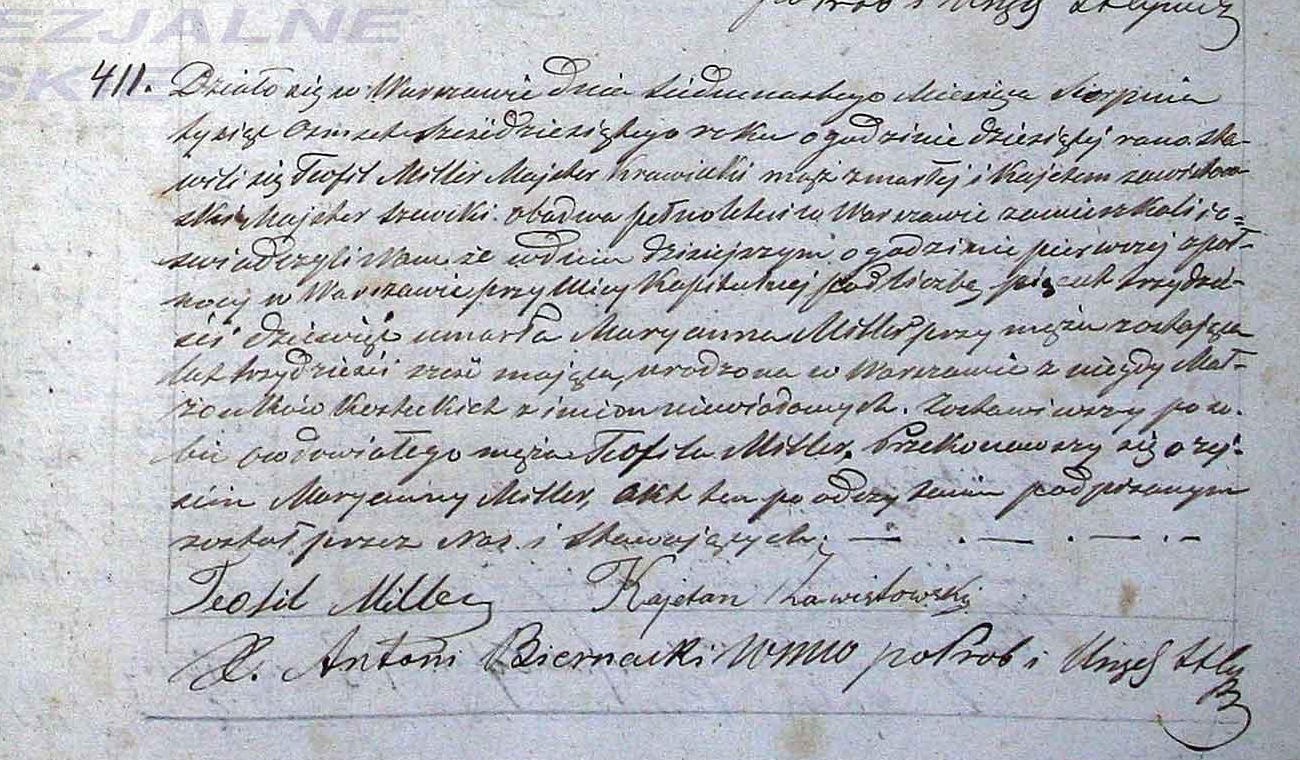 EZJALNE
SKIE
411. Działo się w Warszawie dnia siedmnastego Miesiąca Sierpnia
tysiąc Ośmset sześćdziesiątego roku o godzinie dziesiątej rano. Sta-
wili się Teofil Miller Majster Krawiecki mąż zmarłej i Kajetan Zawistow-
ski Majster szewcki. Obadwa pełnoletni w Warszawie zamieszkali, o=
świadczyli Nam że w dniu dzisiejszym o godzinie pierwszej z pół-
nocy w Warszawie przy Ulicy Kapitulnej pod liczbą pięćset trzydzie-
ści dziewięć umarła Maryanna Miller przy mężu zostająca
lat trzydzieści sześć mająca, urodzona w Warszawie z niegdy Mał-
żonków Kosteckich z imion niewiadomych. Zostawiwszy po so-
bie owdowiałego męża Teofila Miller, Przekonawszy się o zej-
ściu Maryanny Miller, Akt ten po odczytaniu podpisanym
został przez Nas i Stawających. — . — . — . —
Teofil Miller Kajetan Zawistowski
X. Antoni Biernacki po Prob i Urzęd